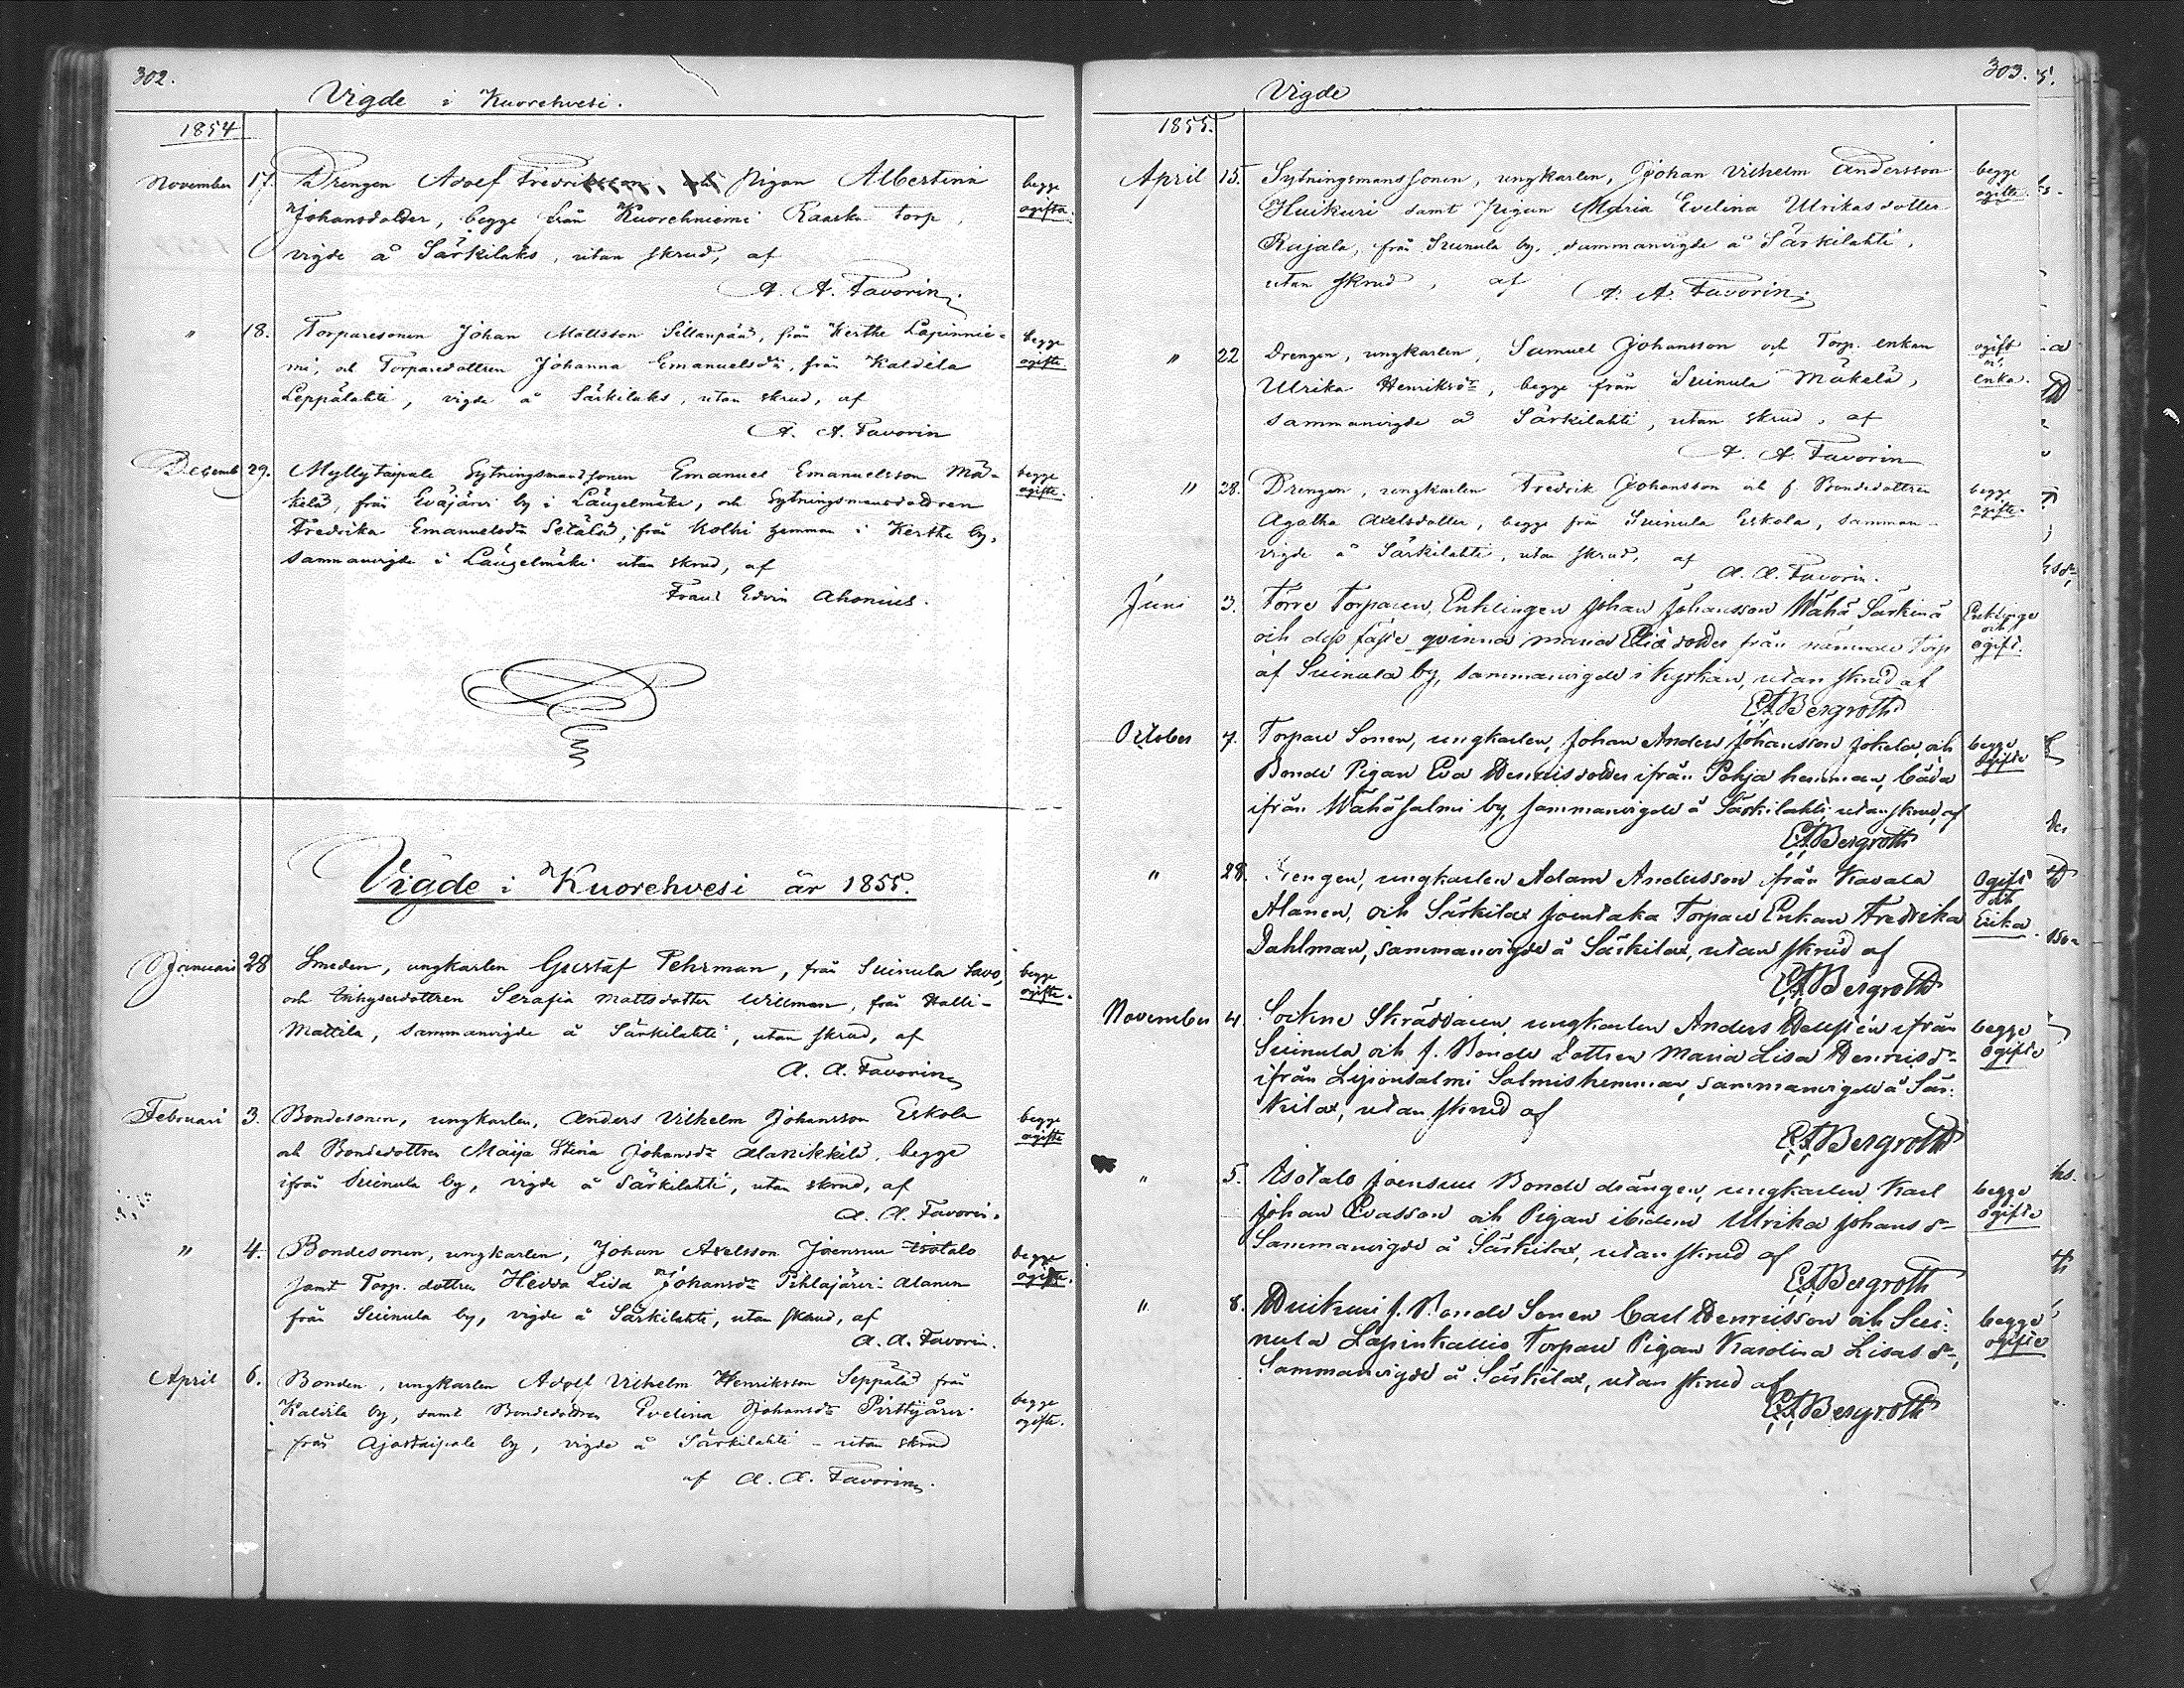 302.
Vigde i Kuorehvesi.
1854
November 17. Drengen Adolf Fredriksson och Pigan Albertina begge
Johansdotter, begge från Kuorehniemi Raaska torp, ogifta.
vigde å Särkilaks, utan skrud, af
A. A. Favorin.
" 18. Torparesonen Johan Mattsson Sillanpää, från Kerthe Lapinnie- begge
mi, och Torparedottren Johanna Emanuelsdr, från Kaldila ogifte
Leppälahti, vigde å Särkilaks, utan skrud, af
A. A. Favorin
Decemb 29. Myllytaipale Sytningsmanssonen Emanuel Emanuelsson Mä- begge
kelä, från Eväjärvi by i Längelmäki, och Sytningsmansdottren ogifte.
Fredrika Emanuelsdr Setälä, från Kolhi hemman i Kerthe by,
sammanvigde i Längelmäki utan skrud, af
Frans Edvin Ahonius.
Vigde i Kuorehvesi år 1855.
Januari 28 Smeden, ungkarlen Gustaf Pehrman, från Suinula Savo, begge
och Inhysesdottren Serafia Mattsdotter Willman, från Halli- ogifte.
Mattila, sammanvigde å Särkilahti, utan skrud, af
A. A. Favorin
Februari 3. Bondesonen, ungkarlen, Anders Vilhelm Johansson Eskola begge
och Bondedottren Maija Stina Johansdr Alanikkilä, begge ogifte
ifrån Suinula by, vigde å Särkilahti, utan skrud, af
A. A. Favorin.
" 4. Bondesonen, ungkarlen, Johan Axelsson Joensuu Isotalo begge
samt Torp. dottren Hedda Lisa Johansdr Pihlajärvi Alanen ogifte.
från Suinula by, vigde å Särkilahti, utan skrud, af
A. A. Favorin.
April 6. Bonden, ungkarlen Adolf Vilhelm Henriksson Seppälä från
Kaldila by, samt Bondedottren Evelina Johansdr Pirttijärvi begge
från Ajostaipale by, vigde å Särkilahti - utan skrud ogifte.
af A. A. Favorin.
303.
Vigde
1855.
April 15. Sytningsmanssonen, ungkarlen, Johan Vilhelm Andersson begge
Huikuri samt Pigan Maria Evelina Ulrikasdotter ogifte.
Rajala, från Suinula by, sammanvigde å Särkilahti,
utan skrud, af A. A. Favorin
" 22 Drengen, ungkarlen, Samuel Johansson och Torp. enkan ogift
Ulrika Henriksdr, begge från Suinula Mäkelä, enka.
sammanvigde å Särkilahti, utan skrud, af
A. A. Favorin
" 28. Drengen, ungkarlen Fredrik Johansson och f. Bondedottren begge
Agatha Axelsdotter, begge från Suinula Eskola, samman- ogifte.
vigde å Särkilahti, utan skrud, af
A. A. Favorin.
Juni 3. Förre Torparen, Enklingen Johan Johansson Wähä Särkinä Enklinge
och dess fäste qvinna Maria Eliædotter från nämnde Torp och ogift.
af Suinula by, sammanvigde i Kyrkan, utan skrud af
E A Bergroth
October 7. Torpare Sonen, ungkarlen, Johan Anders Johansson Jokela, och begge
Bonde Pigan Eva Henrisdotter ifrån Pohja hemman, båda ogifte
ifrån Wähäsalmi by, sammanvigde å Särkilahti, utan skrud, af
E A Bergroth
" 28. Drengen, ungkarlen Adam Andersson ifrån Kavala Ogift
Alanen, och Särkilax Joentaka Torpare Enkan Fredrika och Enka.
Dahlman, sammanvigde å Särkilax, utan skrud af
E A Bergroth
November 4. Sockne Skräddaren, ungkarlen Anders ifrån begge
Suinula och f. Bonde Dottren Maria Lisa Henrisdr ogifte
ifrån Lijionsalmi Salmis hemman, sammanvigde å Sär-
kilax, utan skrud af
E A Bergroth
" 5. Isotalo Joensuu Bonde drängen, ungkarlen Karl begge
Johan Evasson och Pigan ibidem Ulrika Johansdr ogifte
Sammanvigde å Särkilax, utan skrud af
E A Bergroth
" 8. Huikuri f. Bonde Sonen Carl Henrisson och Sui- begge
nula Lapinkallio Torpare Pigan Karolina Lisasdr, ogifte
Sammanvigde å Särkilax, utan skrud af
E A Bergroth